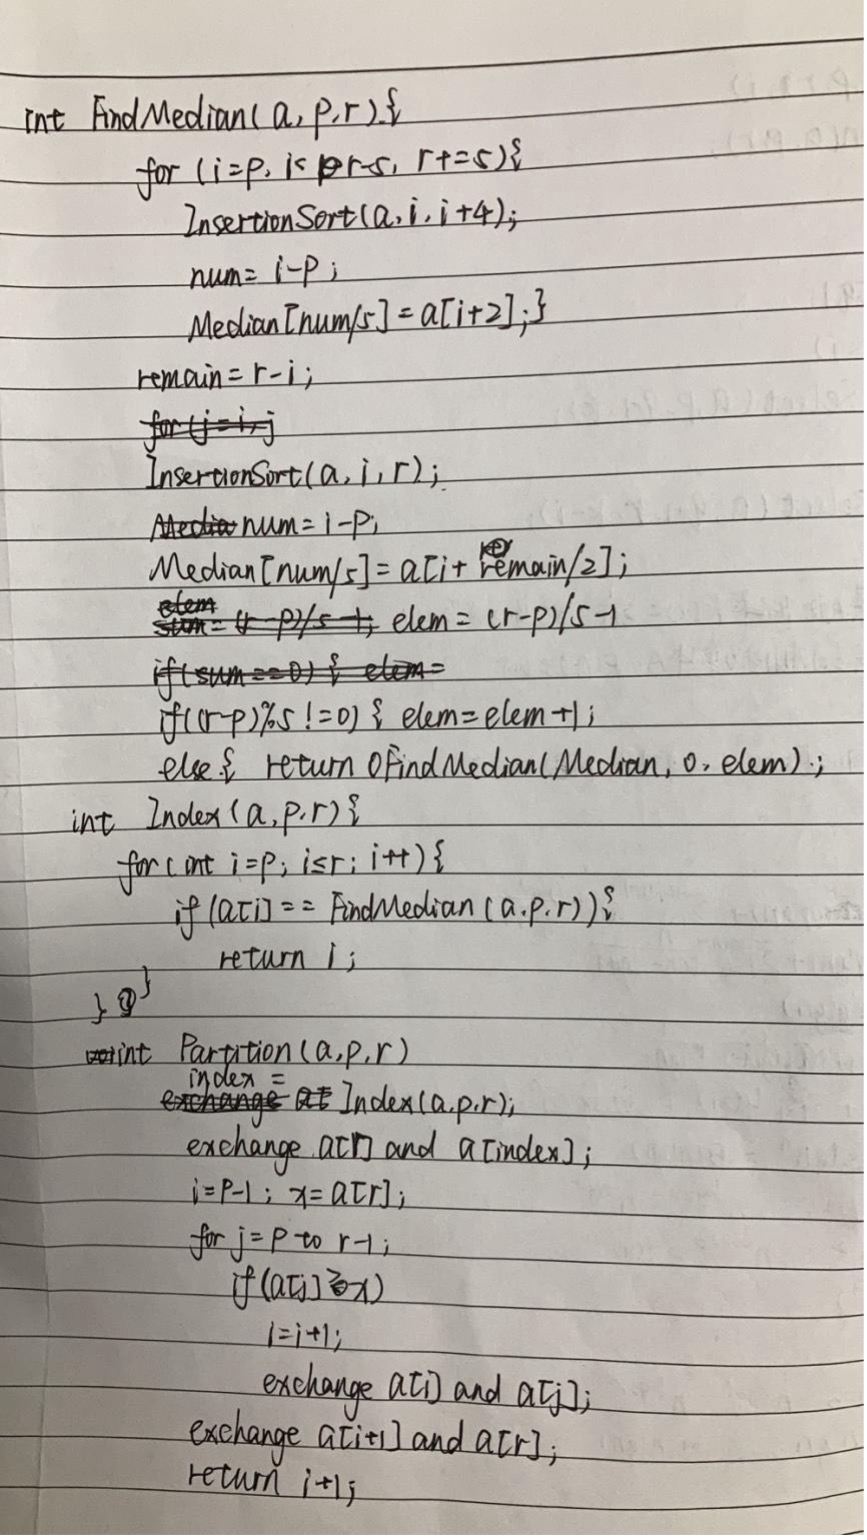 int FindMedian(a, p,r){
for (i=p, i< r-5, r+=5){
InsertionSort(a,i,i+4);
num= i-p;
Median[num/5]=a[i+2];}
remain=r-i;
for(j=i,j
InsertionSort(a,i,r);
Media num=i-p;
Median[num/5]=a[i+remain/2];
elem
sum=(r-p)/5-1; elem=(r-p)/5-1
if(sum==0) { elem=
if((r-p)%5!=0) { elem=elem+1;
else{ return FindMedian(Median, 0, elem);
int Index(a,p,r){
for(int i=p; i≤r; i++){
if(a[i]== FindMedian(a,p,r)){
return i;
}
}
int Partition(a,p,r)
index =
exchange at Index(a,p,r);
exchange a[r] and a[index];
i=p-1; x=a[r];
for j=p to r-1;
if(a[j]≥x)
i=i+1;
exchange a[i] and a[j];
exchange a[i+1] and a[r];
return i+1;